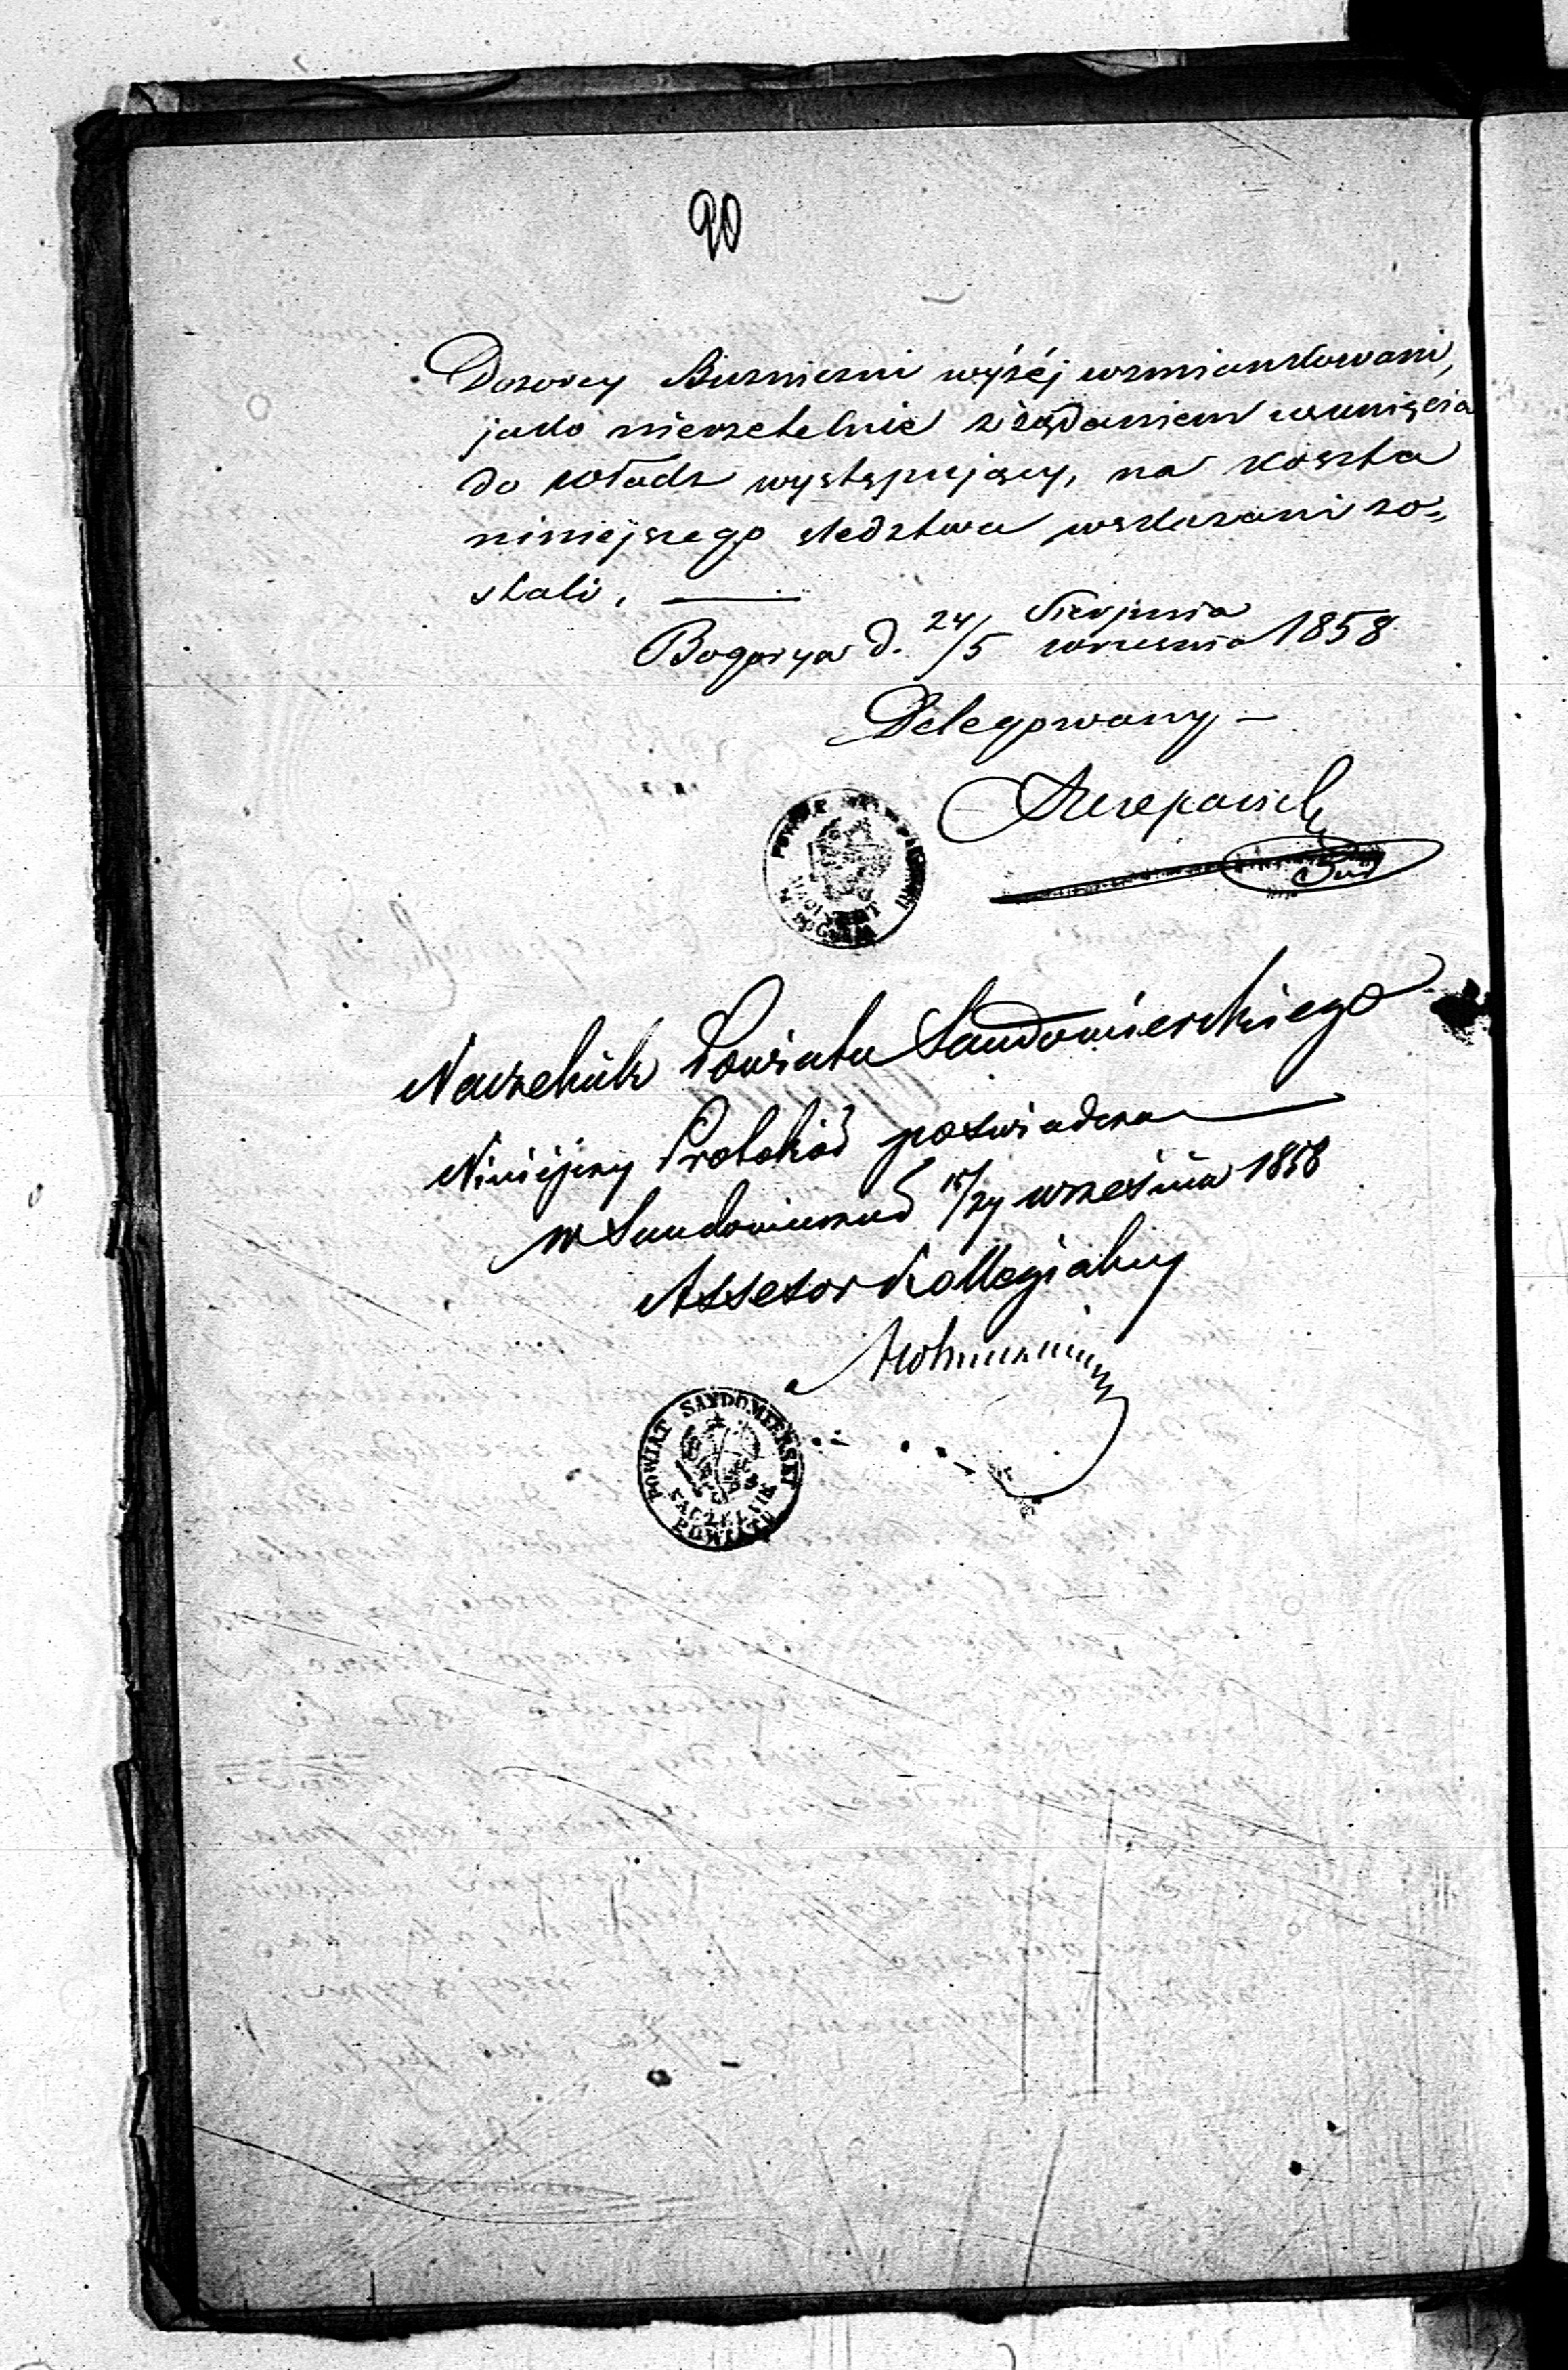 20
Dozorcy Bużniczni wyżéj wzmiankowani,
jako nierzetelnie z żądaniem usunięcia
do władz występujący, na koszta
niniejszego sledztwa wskazani zo-
stali. —
Bogorya d. 24/5 Sierpnia/września 1858
Delegowany —
Naczelnik Powiatu Sandomierskiego
Niniejszy Protokół poświadcza
w Sandomierzu d 12/24 września 1858
Assesor Kollegialny
POWIAT SANDOMIERSKI
NACZELNIK
POWIATU